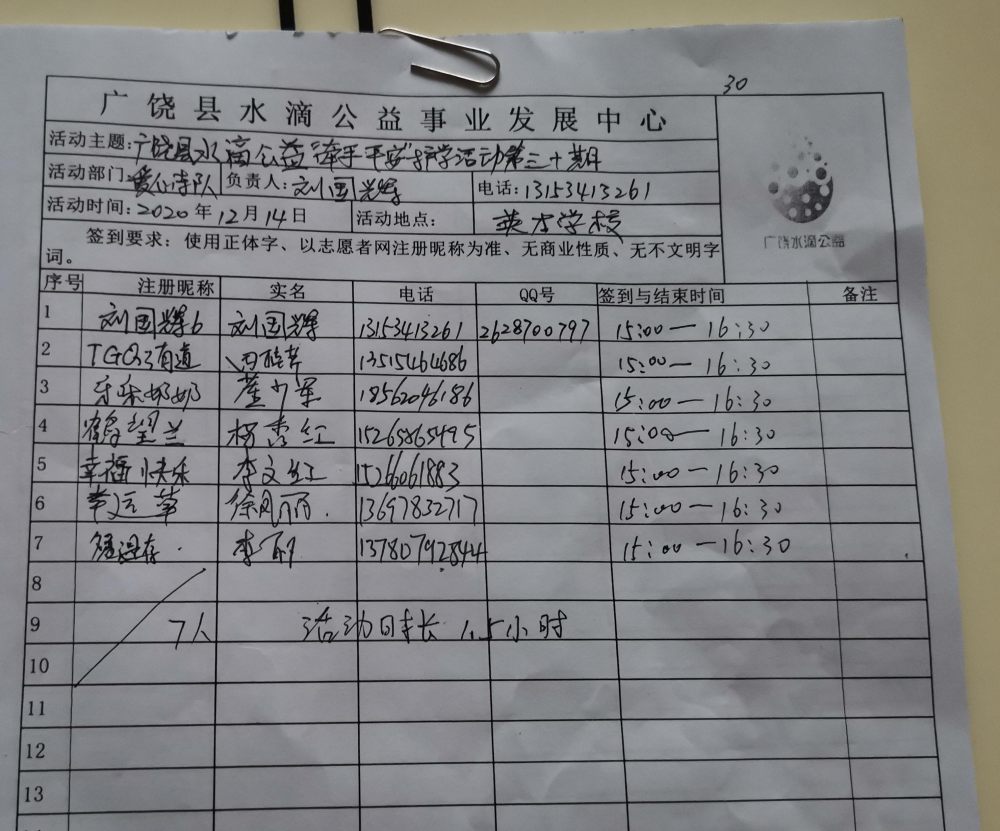 30
广饶县水滴公益事业发展中心
活动主题:广饶县水滴公益“牵手平安”护学活动第三十期
活动部门:爱心书队 负责人:刘国辉 电话:13153413261
活动时间:2020年12月14日 活动地点: 英才学校
广饶水滴公益
签到要求:使用正体字、以志愿者网注册昵称为准、无商业性质、无不文明字
词。
序号 注册昵称 实名 电话 QQ号 签到与结束时间 备注
1 刘国辉6 刘国辉 13153413261 2628700797 15:00—16:30
2 13515464686 15:00—16:30
3 乐乐奶奶 18562046186 15:00—16:30
4 鹤望兰 杨秀红 15265865495 15:00—16:30
5 幸福快乐 李文红 15266061883 15:00—16:30
6 幸运草 徐凤丽 13697832717 15:00—16:30
7 李丽 13780792844 15:00—16:30
8
9 7人 活动时长 1.5小时
10
11
12
13